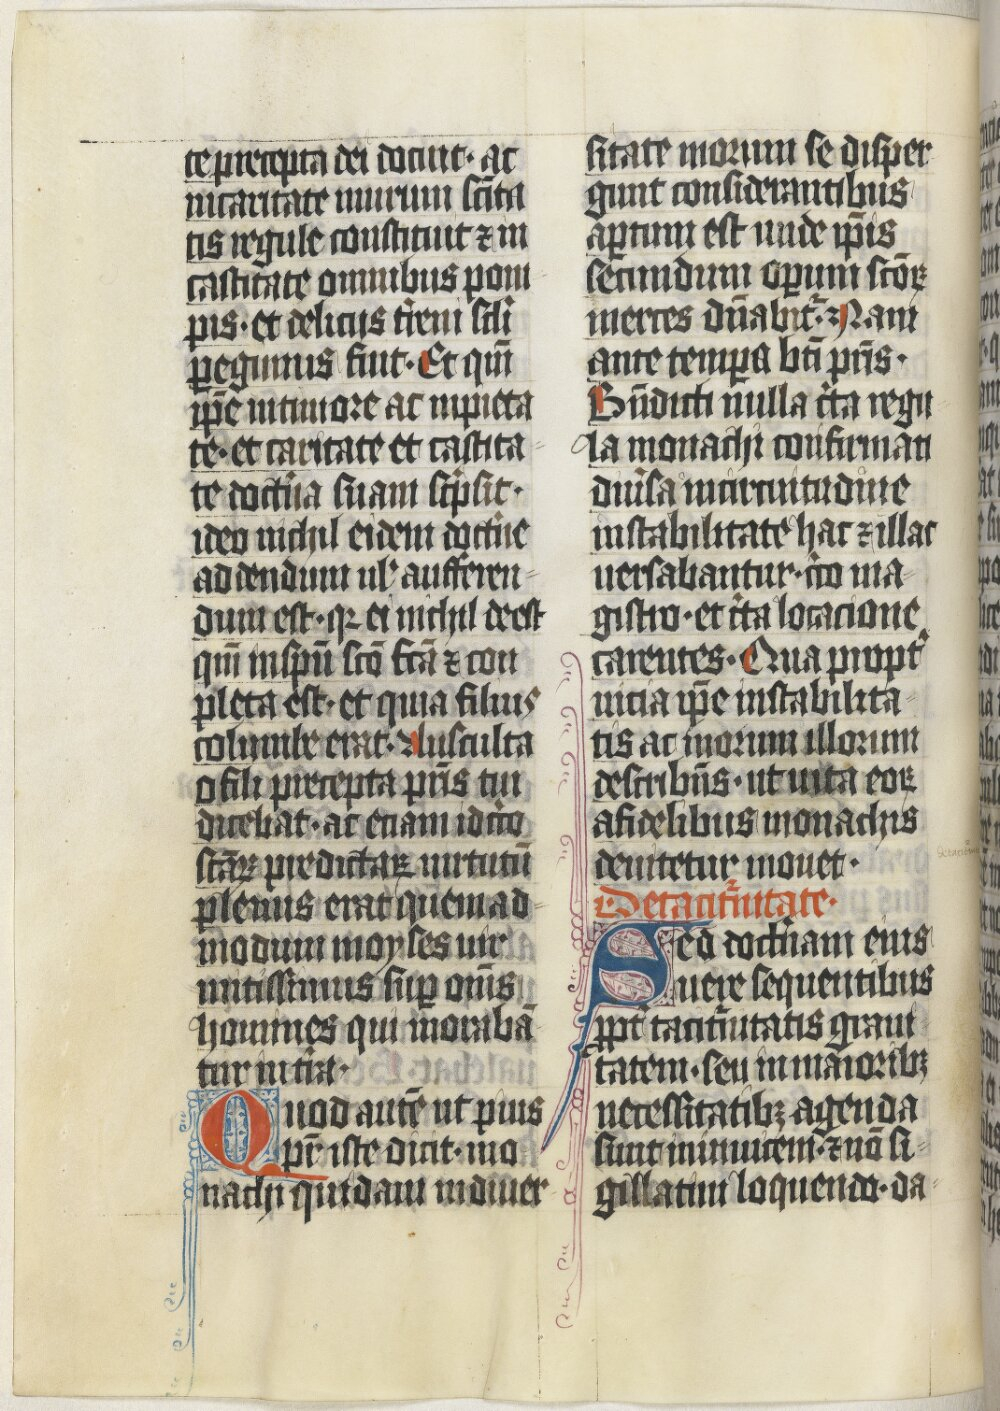 te precepta dei docuit· ac
in caritate murum scīta
tis regule constituit ⁊ in
castitate omnibus pom
pis· et delicijs t̄reni sc̄li
ꝑegrinus fuit· Et qm̄
ip̄e in timore ac in pieta
te· et caritate et castita-
te doctⁱna suam scⁱpsit·
ideo nichil eidem doctⁱne
addendum ul' aufferen-
dum est· qꝛ ei nichil deest
qm̄ in sp̄u sc̄o fc̄a ⁊ con
pleta est· et quia filius
columbe erat· Ausculta
o fili precepta pr̄is tui
dicebat· ac etiam idc̄o
sc̄aꝝ predictaꝝ uirtutū
plenus erat quem ad-
modum moyses uir
mitissimus suꝑ om̄s
homines qui moraban̄-
tur in t̄ra·
Quod autē ut pius
pr̄ iste dicit· mo
nachi quidam in diuer-
sitate morum se disper
gunt considerantibus
aꝑtum est unde ip̄is
secundum oꝑum suoꝝ
merces dūabit̄· Nam
ante tempa bt̄i pr̄is·
Bn̄dicti nulla c̄ta regu
la monachi confirmati
diuⁱsa in circuitudine
instabilitate hac ⁊ illac
uersabantur· c̄to ma-
gistro· et c̄ta locacione
carentes· Qua propt̄
uicia ip̄e instabilita-
tis ac morum illorum
describens· ut uita eoꝝ
a fidelibus monachis
deuitetur mouet·
De tacit̄nitate·
Sed doctⁱnam eius
uere sequentibus
ꝓpt̄ tacit̄nitatis graui
tatem· seu in maioribꝫ
necessitatibꝫ agenda
sunt in inuicem· ⁊ nō si-
gillatim loquendo· da-